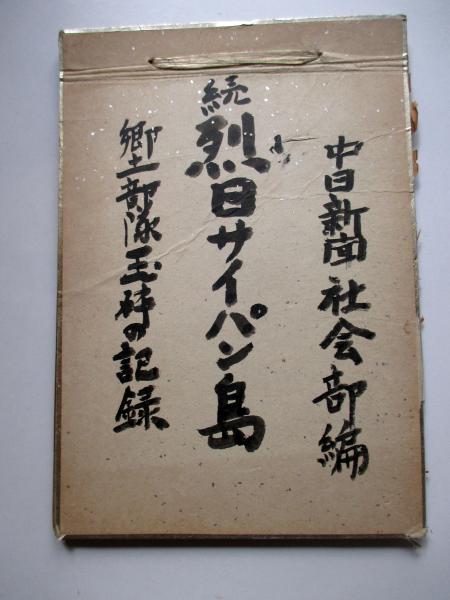 中日新聞社会部編
続烈日サイパン島
郷土部隊玉砕の記録